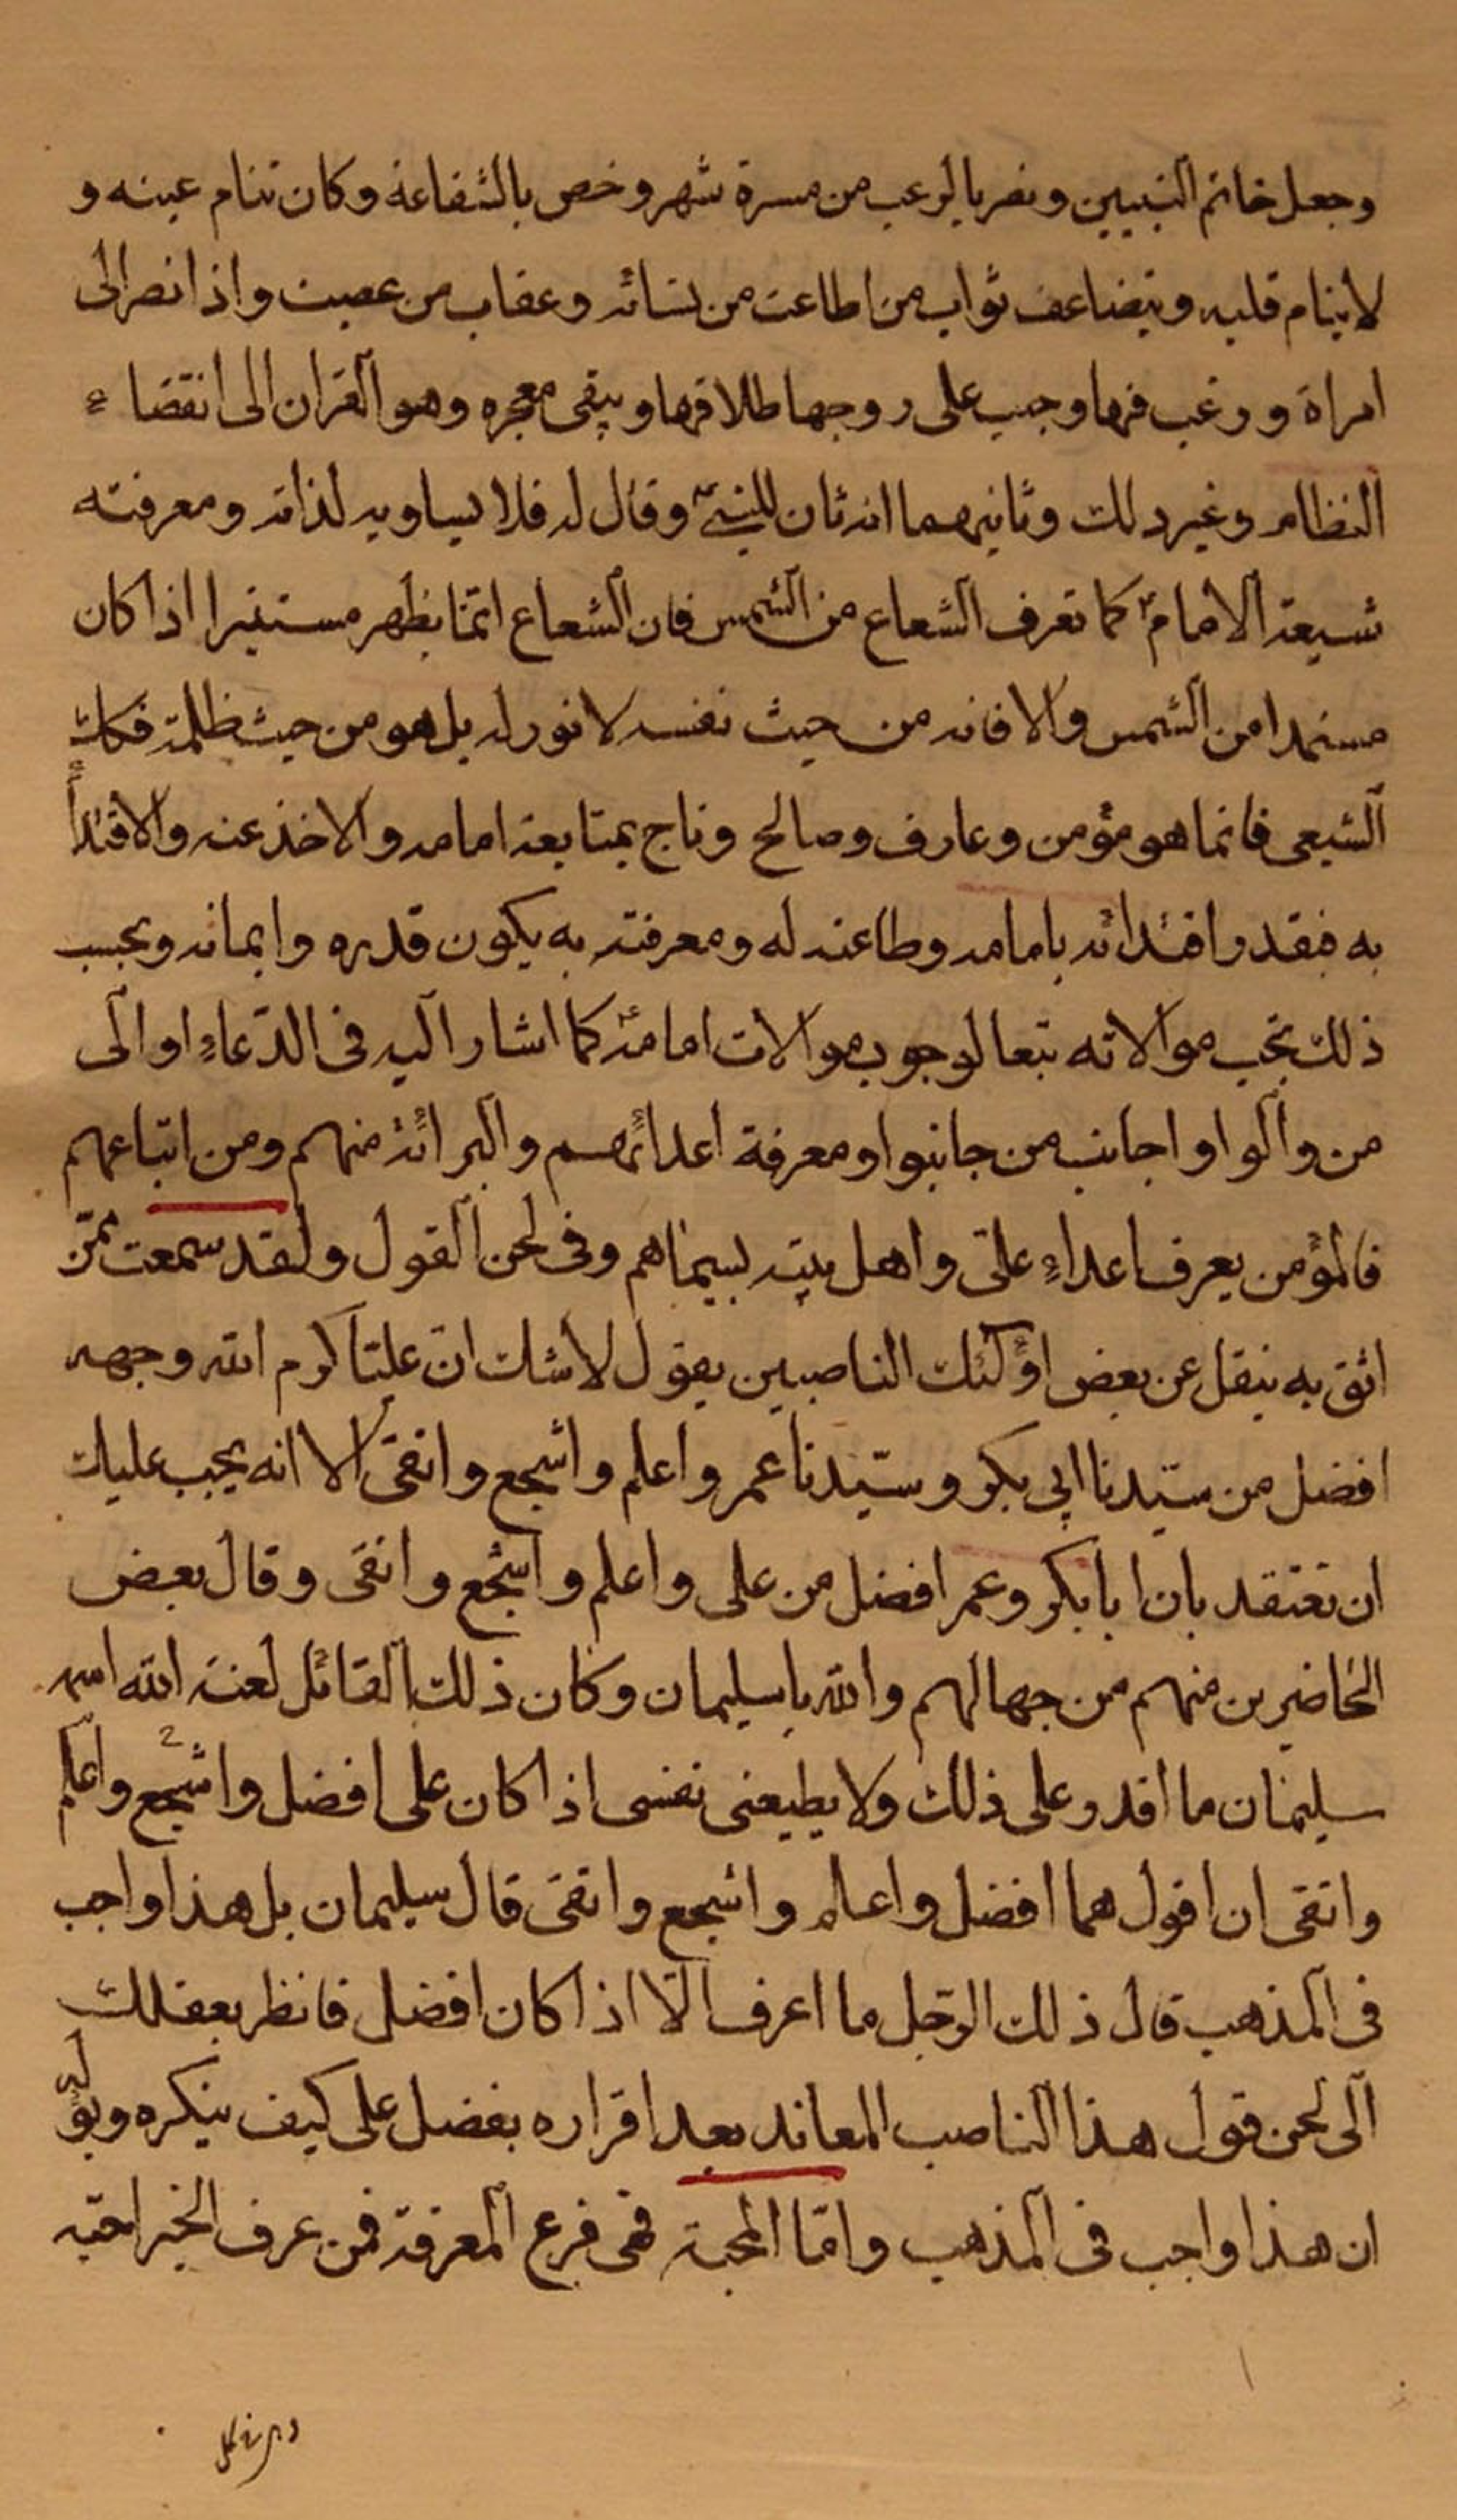 وجعل خاتم النبيين ونصر بالرعب من مسرة شهر وخص بالشفاعة وكان تنام عينه و
لا ينام قلبه ويتضاعف ثواب من اطاعت من نسائه وعقاب من عصيت واذا نصر الى
امراة ورغب فيها وجب على زوجها طلاقها ويبقى معجزه وهو القران الى انقضاء
النظام وغير ذلك وثانيهما انه ثان للنبيؐ وقال له فلا يساويه لذاته ومعرفته
شيعة الامامؑ كما تعرف الشعاع من الشمس فان الشعاع انمّا يظهر مستنيرا اذا كان
مستمدا من الشمس والا فانه من حيث نفسه لا نور له بل هو من حيث ظلمة فكك
الشيعى فانما هو مؤمن وعارف وصالح وناج بمتابعة امامه والاخذ عنه والاقتداء
به فبقدر اقتدائه بامامه وطاعته له ومعرفته به يكون قدره وايمانه وبحسب
ذلك تجب موالاته تبعا لوجوب موالات امامهؑ كما اشار اليه فى الدّعاءِ اوالى
من والوا واجانب من جانبوا ومعرفة اعدائهم والبرائة منهم ومن اتباعهم
فالمؤمن يعرف اعداءِ علىّ واهل بيته بسيماهم وفى لحن القول ولقد سمعت ممّن
اثق به ينقل عن بعض اوُلئك الناصبين يقول لا شك انّ عليّا كرم الله وجهه
افضل من سيّدنا ابي بكر وسيّدنا عمر واعلم واشجع واتقى الا انه يجب عليك
ان تعتقد بان ابا بكر وعمر افضل من على واعلم واشجع واتقى وقال بعض
الحاضرين منهم من جهالهم والله يا سليمان وكان ذلك القائل لعنة الله اسمه
سليمان ما اقدر على ذلك ولا يطيعنى نفسى اذا كان على افضل واشجع واعلم
واتقى ان اقول هما افضل واعلم واشجع واتقى قال سليمان بل هذا واجب
فى المذهب قال ذلك الرّجل ما اعرف الّا اذا كان افضل فانظر بعقلك
الى لحن قول هذا الناصب المعاند بعد اقراره بفضل على كيف ينكره ويؤل
ان هذا واجب فى المذهب وامّا المحبة فهى فرع المعرفة فمن عرف الخير احبّه